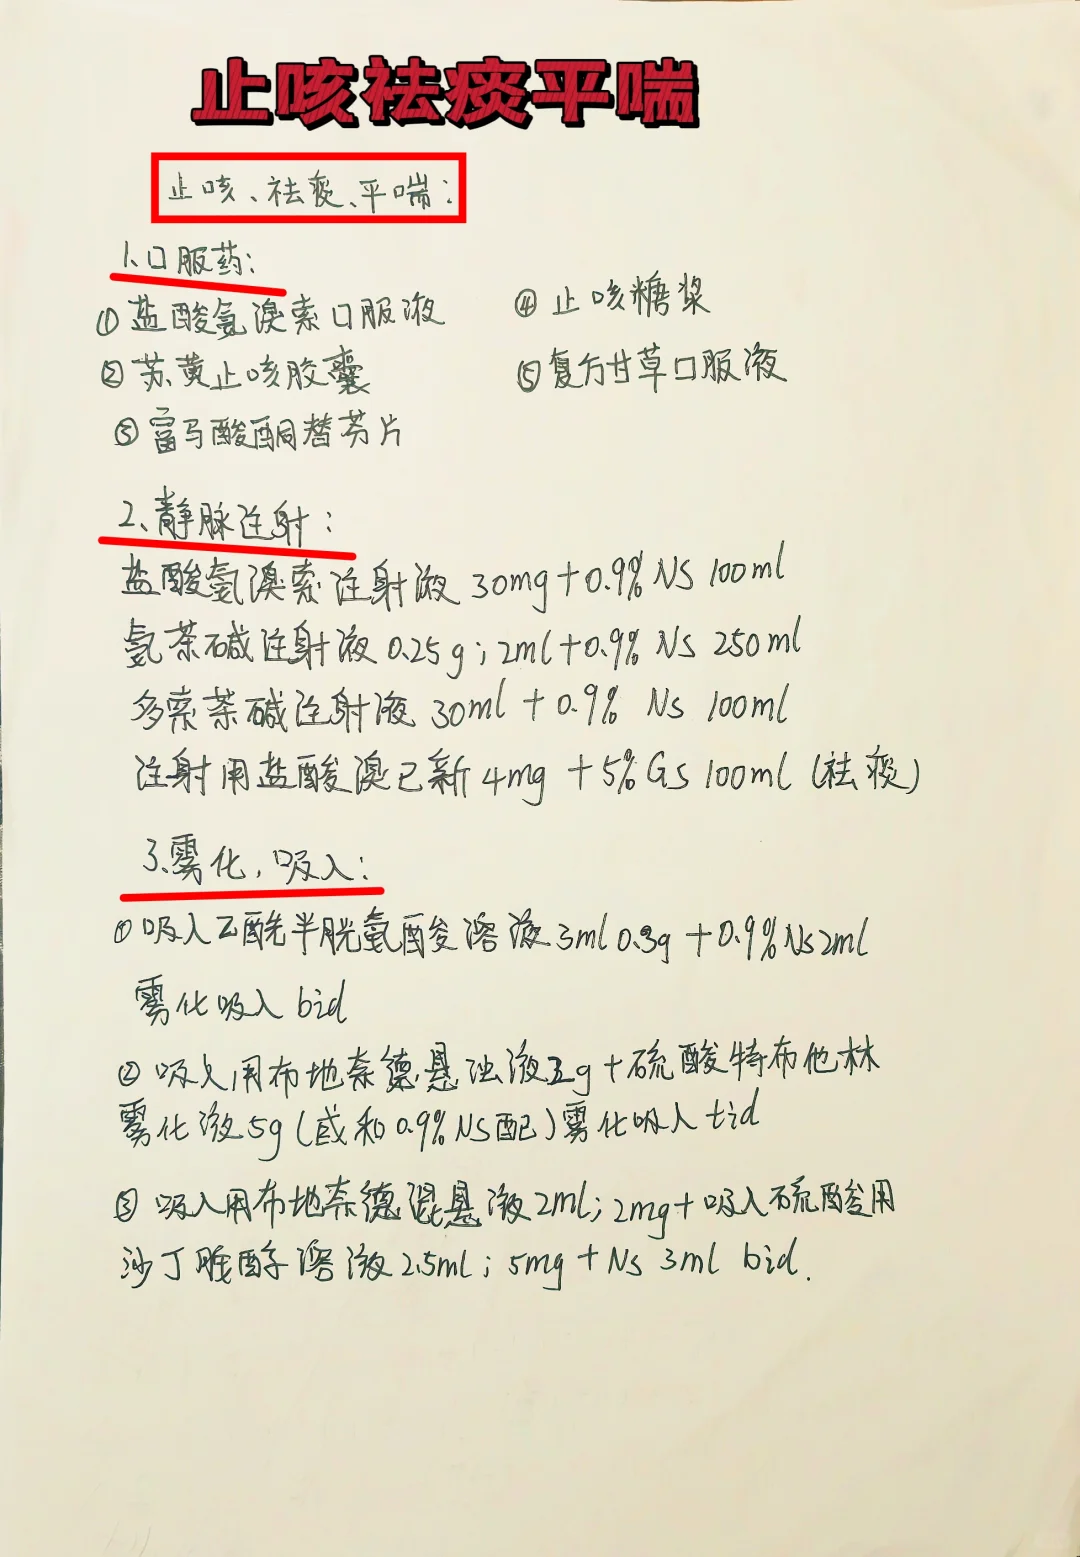 止咳祛痰平喘
止咳、祛痰、平喘:
1.口服药:
①盐酸氨溴索口服液
④止咳糖浆
②苏黄止咳胶囊
⑤复方甘草口服液
③富马酸酮替芬片
2、静脉注射:
盐酸氨溴索注射液 30mg+0.9% NS 100ml
氨茶碱注射液 0.25g;2ml+0.9% NS 250ml
多索茶碱注射液 30ml + 0.9% Ns 100ml
注射用盐酸溴已新 4mg +5% GS 100ml (祛痰)
3.雾化,吸入:
①吸入乙酰半胱氨酸溶液 3ml 0.3g +0.9% Ns 2ml
雾化吸入 bid
②吸入用布地奈德悬浊液 g+硫酸特布他林
雾化液 5g (或和 0.9% NS配)雾化吸入 tid
③吸入用布地奈德混悬液 2ml;2mg+吸入硫酸用
沙丁胺醇溶液 2.5ml;5mg + Ns 3ml bid.